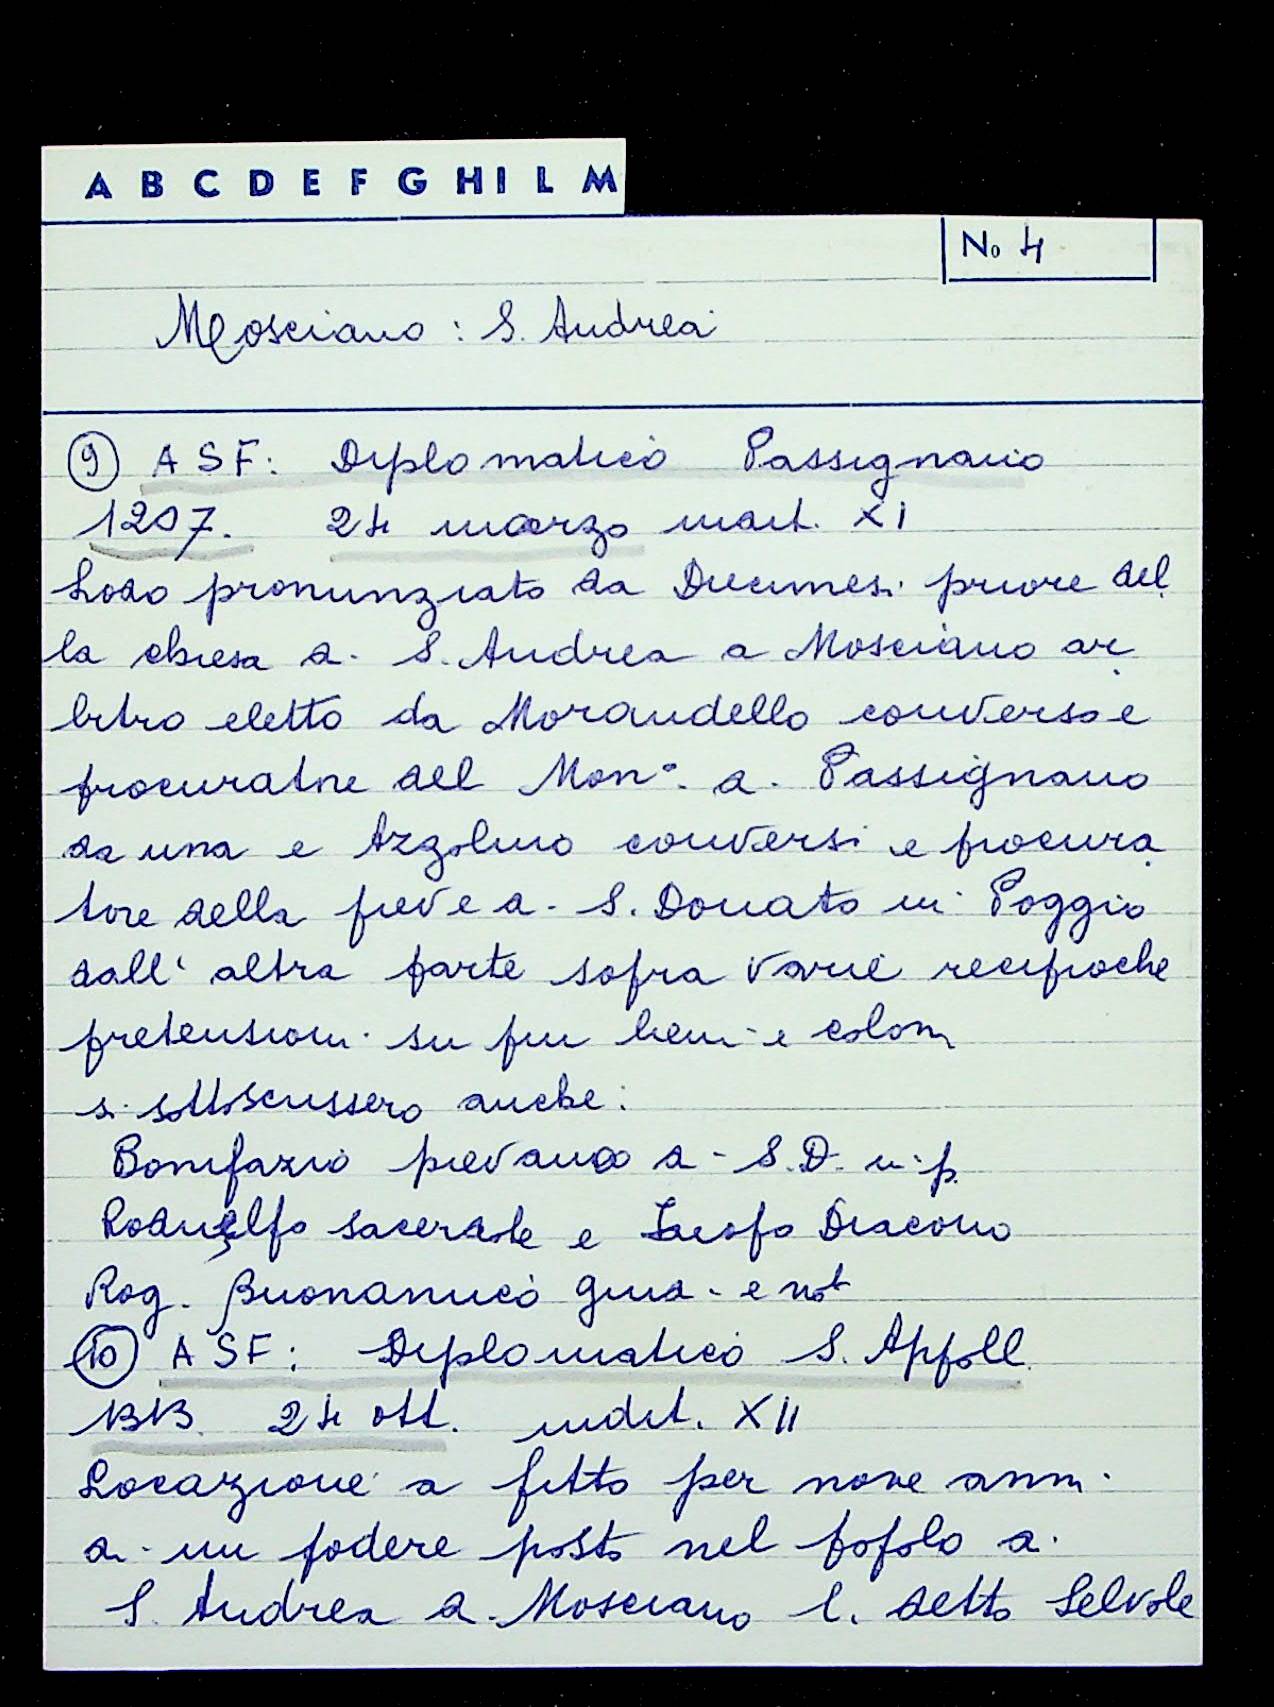 A B C D E F G H I L M
No 4
Mosciano : S. Andrea
9 ASF: Diplomatico Passignano
1207. 24 marzo ind. XI
Lodo pronunziato da Diecimesi priore del
la chiesa di S. Andrea a Mosciano ar
bitro eletto da Morandello converso e
procuratore del Mon°. di Passignano
da una e Azzolino conversi e procura
tore della pieve di S. Donato in Poggio
dall' altra parte sopra varie reciproche
pretensioni su più beni e coloni
si sottoscrissero anche:
Bonifazio pievano di S.D. in p.
Rodolfo sacerdote e Iacopo Diacono
Rog. Buonamico giud. e not
10 ASF: Diplomatico S. Appoll.
1313. 24 ott. indit. XII
Locazione a fitto per nove anni
di un podere posto nel popolo di
S. Andrea a Mosciano l. detto Selvole